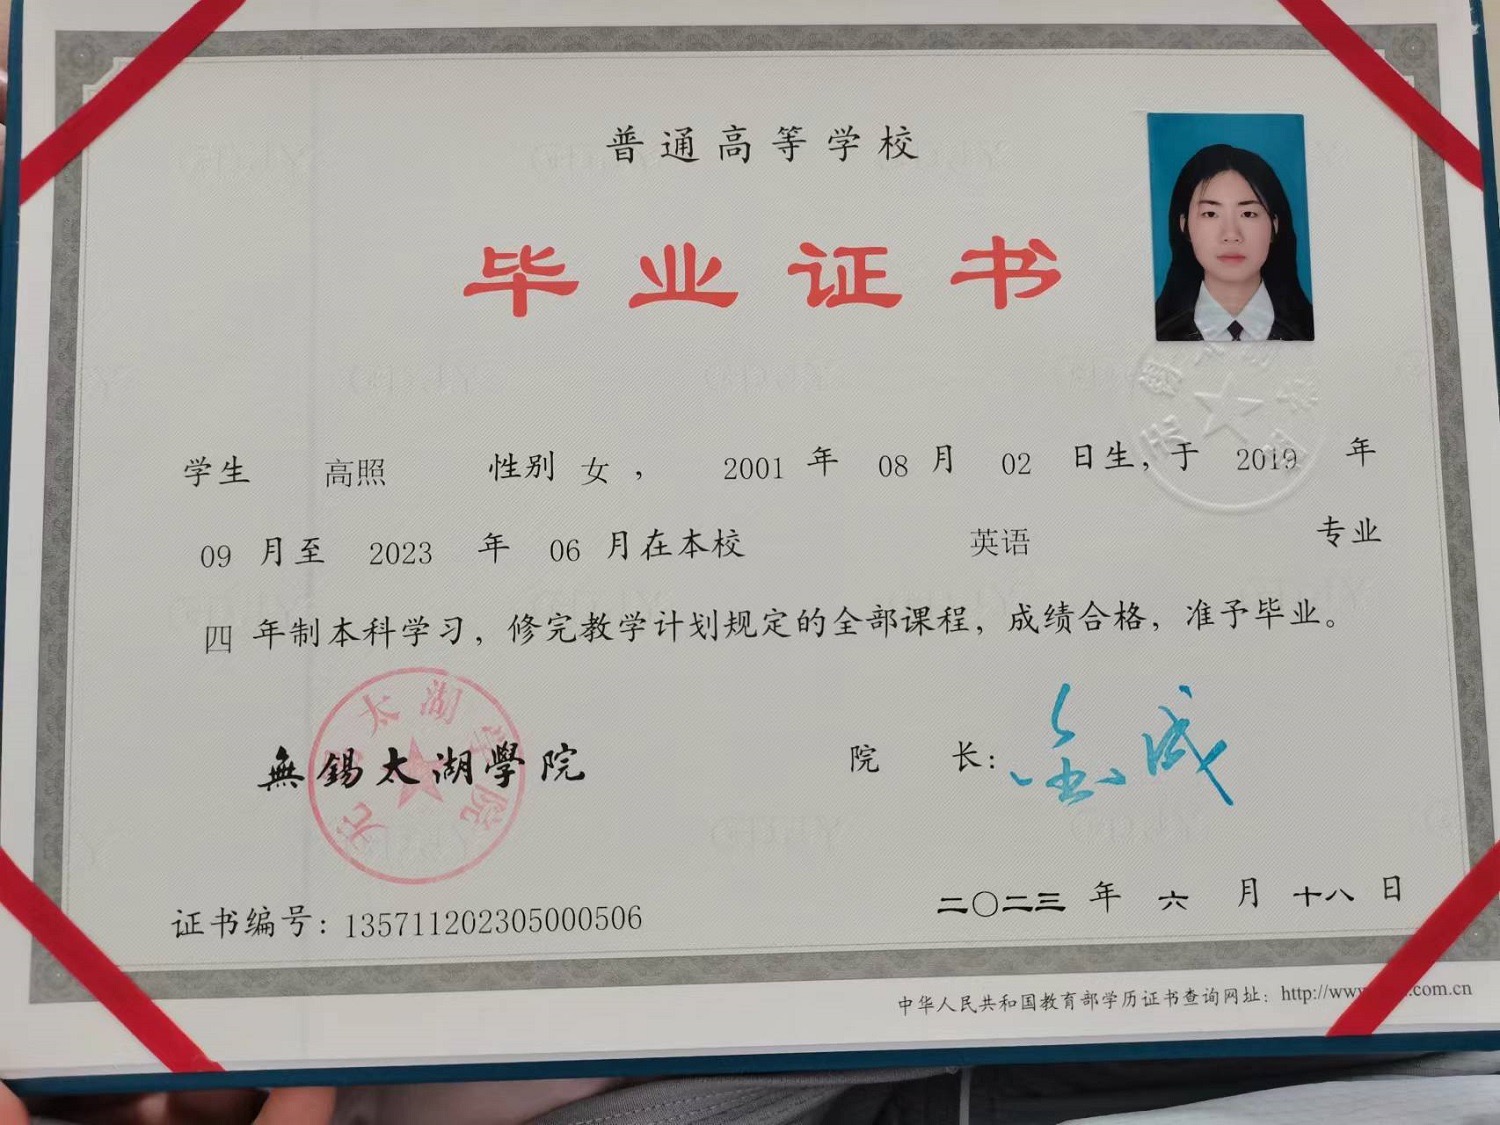 普通高等学校
毕业证书
学生 高照 性别 女， 2001 年 08 月 02 日生，于 2019 年
09 月至 2023 年 06 月在本校 英语 专业
四 年制本科学习，修完教学计划规定的全部课程，成绩合格，准予毕业。
無錫太湖學院
无锡太湖学院
院 长：
证书编号：135711202305000506
二〇二三 年 六 月 十八 日
中华人民共和国教育部学历证书查询网址：http://www. .com.cn